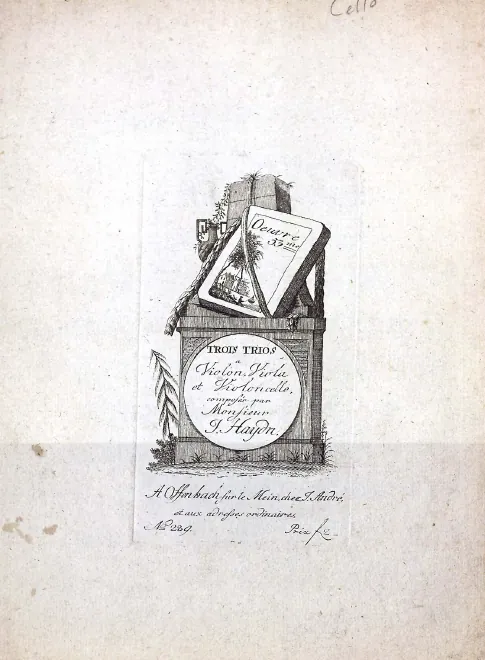 Cello
Oeuvre
33me
TROIS TRIOS
à
Violon, Viola
et Violoncello,
composés par
Monsieur
J. Haydn.
A Offenbach sur le Mein, chez J. André,
et aux adresses ordinaires.
No 289. Prix f 2